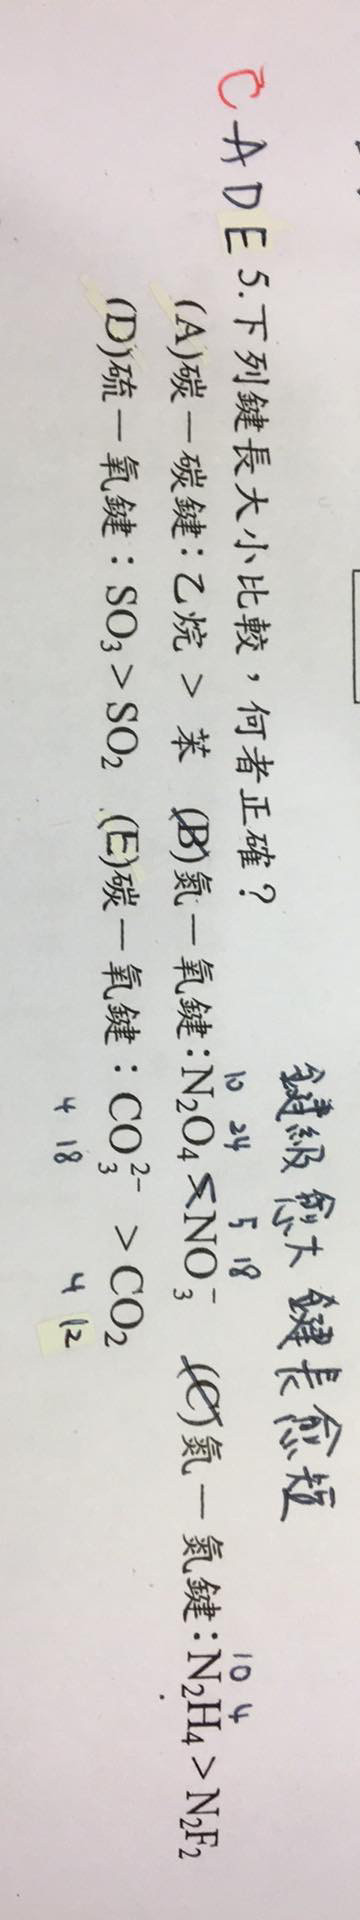 鍵級愈大 鍵長愈短
C A D E 5.下列鍵長大小比較，何者正確？
10 24 5 18 10 4
(A)碳－碳鍵：乙烷 > 苯 (B)氮－氧鍵：N₂O₄ < NO₃⁻ (C)氮－氮鍵：N₂H₄ > N₂F₂
(D)硫－氧鍵：SO₃ > SO₂ (E)碳－氧鍵：CO₃²⁻ > CO₂
4 18 4 12